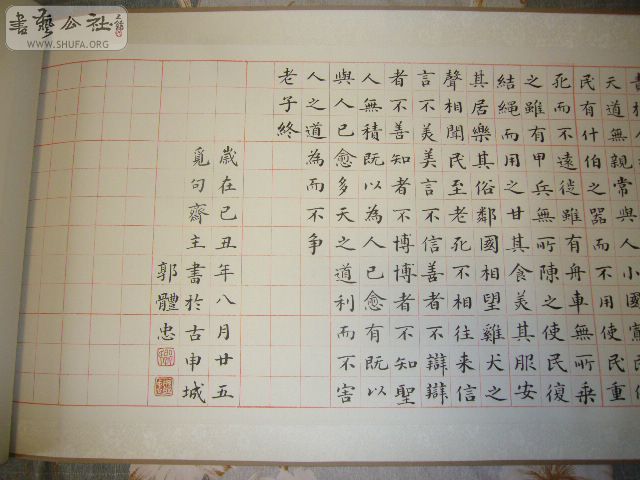 書藝公社
WWW.SHUFA.ORG
天道無親常與人小國寡
民有什伯之器而不用使民重
死而不遠徙雖有舟車無所乘
之雖有甲兵無所陳之使民復
結繩而用之甘其食美其服安
其居樂其俗鄰國相望雞犬之
聲相聞民至老死不相往來信
言不美美言不信善者不辯辯
者不善知者不博博者不知聖
人無積既以為人已愈有既以
與人已愈多天之道利而不害
人之道為而不争
老子終
歲在己丑年八月廿五
覓句齋主書於古申城
郭體忠